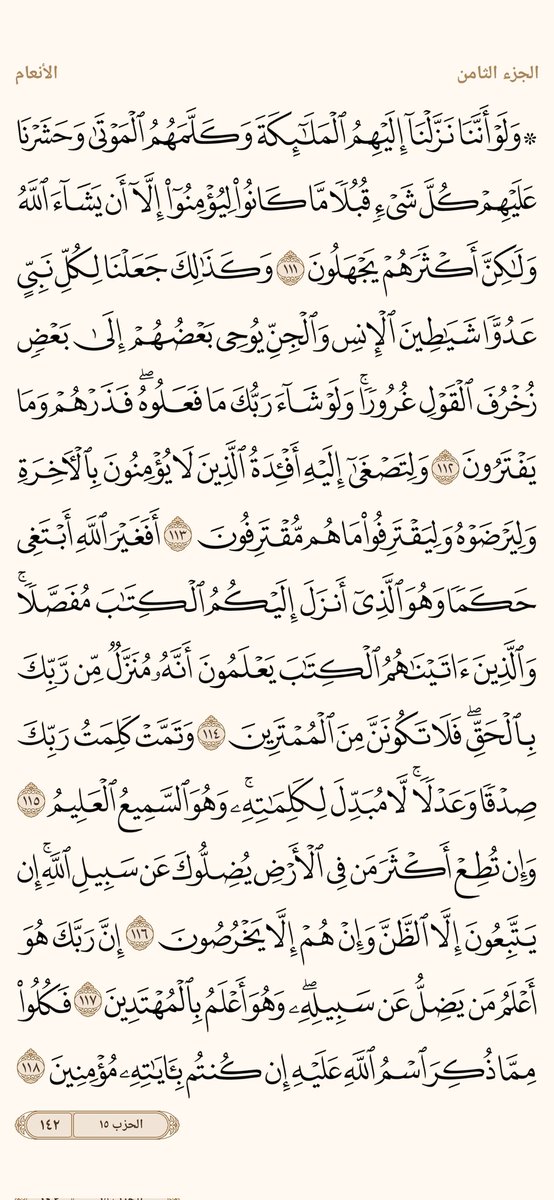 الجزء الثامن
الأنعام
۞ وَلَوۡ أَنَّنَا نَزَّلۡنَآ إِلَيۡهِمُ ٱلۡمَلَٰٓئِكَةَ وَكَلَّمَهُمُ ٱلۡمَوۡتَىٰ وَحَشَرۡنَا
عَلَيۡهِمۡ كُلَّ شَيۡءٖ قُبُلٗا مَّا كَانُواْ لِيُؤۡمِنُوٓاْ إِلَّآ أَن يَشَآءَ ٱللَّهُ
وَلَٰكِنَّ أَكۡثَرَهُمۡ يَجۡهَلُونَ ١١١ وَكَذَٰلِكَ جَعَلۡنَا لِكُلِّ نَبِيٍّ
عَدُوّٗا شَيَٰطِينَ ٱلۡإِنسِ وَٱلۡجِنِّ يُوحِي بَعۡضُهُمۡ إِلَىٰ بَعۡضٖ
زُخۡرُفَ ٱلۡقَوۡلِ غُرُورٗاۚ وَلَوۡ شَآءَ رَبُّكَ مَا فَعَلُوهُۖ فَذَرۡهُمۡ وَمَا
يَفۡتَرُونَ ١١٢ وَلِتَصۡغَىٰٓ إِلَيۡهِ أَفۡـِٔدَةُ ٱلَّذِينَ لَا يُؤۡمِنُونَ بِٱلۡأٓخِرَةِ
وَلِيَرۡضَوۡهُ وَلِيَقۡتَرِفُواْ مَا هُم مُّقۡتَرِفُونَ ١١٣ أَفَغَيۡرَ ٱللَّهِ أَبۡتَغِي
حَكَمٗا وَهُوَ ٱلَّذِيٓ أَنزَلَ إِلَيۡكُمُ ٱلۡكِتَٰبَ مُفَصَّلٗاۚ
وَٱلَّذِينَ ءَاتَيۡنَٰهُمُ ٱلۡكِتَٰبَ يَعۡلَمُونَ أَنَّهُۥ مُنَزَّلٞ مِّن رَّبِّكَ
بِٱلۡحَقِّۖ فَلَا تَكُونَنَّ مِنَ ٱلۡمُمۡتَرِينَ ١١٤ وَتَمَّتۡ كَلِمَتُ رَبِّكَ
صِدۡقٗا وَعَدۡلٗاۚ لَّا مُبَدِّلَ لِكَلِمَٰتِهِۦۚ وَهُوَ ٱلسَّمِيعُ ٱلۡعَلِيمُ ١١٥
وَإِن تُطِعۡ أَكۡثَرَ مَن فِي ٱلۡأَرۡضِ يُضِلُّوكَ عَن سَبِيلِ ٱللَّهِۚ إِن
يَتَّبِعُونَ إِلَّا ٱلظَّنَّ وَإِنۡ هُمۡ إِلَّا يَخۡرُصُونَ ١١٦ إِنَّ رَبَّكَ هُوَ
أَعۡلَمُ مَن يَضِلُّ عَن سَبِيلِهِۦۖ وَهُوَ أَعۡلَمُ بِٱلۡمُهۡتَدِينَ ١١٧ فَكُلُواْ
مِمَّا ذُكِرَ ٱسۡمُ ٱللَّهِ عَلَيۡهِ إِن كُنتُم بِـَٔايَٰتِهِۦ مُؤۡمِنِينَ ١١٨
الحزب ١٥
١٤٢